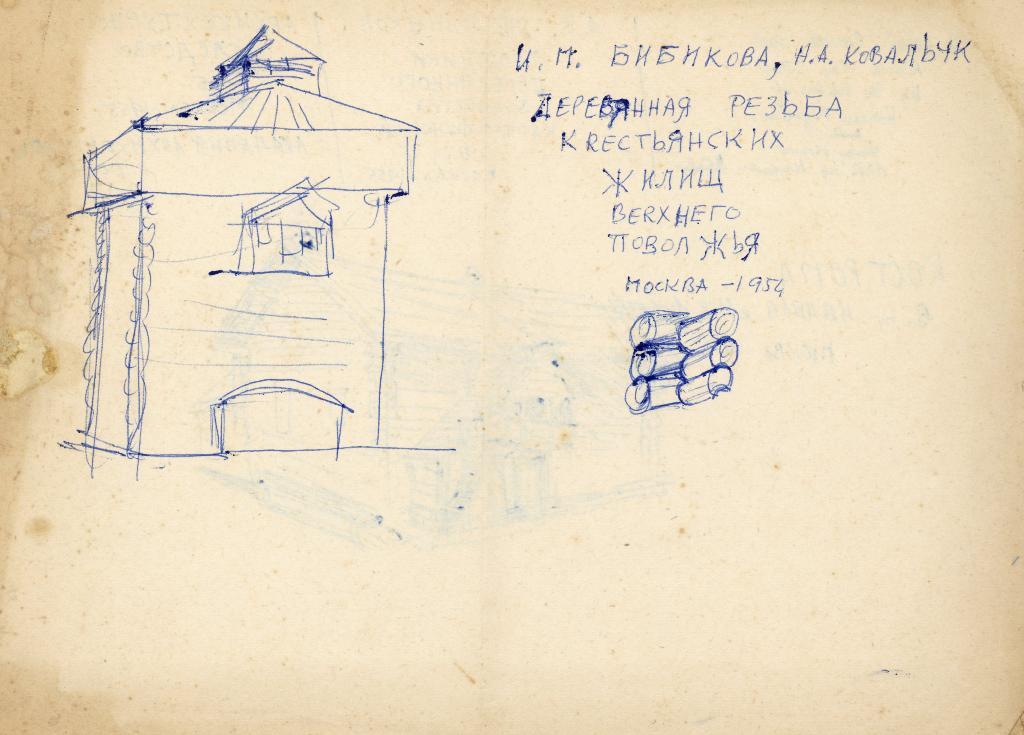 И. М. БИБИКОВА, Н.А. КОВАЛЬЧК
ДЕРЕВЯННАЯ РЕЗЬБА
КRЕСТЬЯНСКИХ
ЖИЛИЩ
ВЕRХНЕГО
ПОВОЛЖЬЯ
МОСКВА - 1954